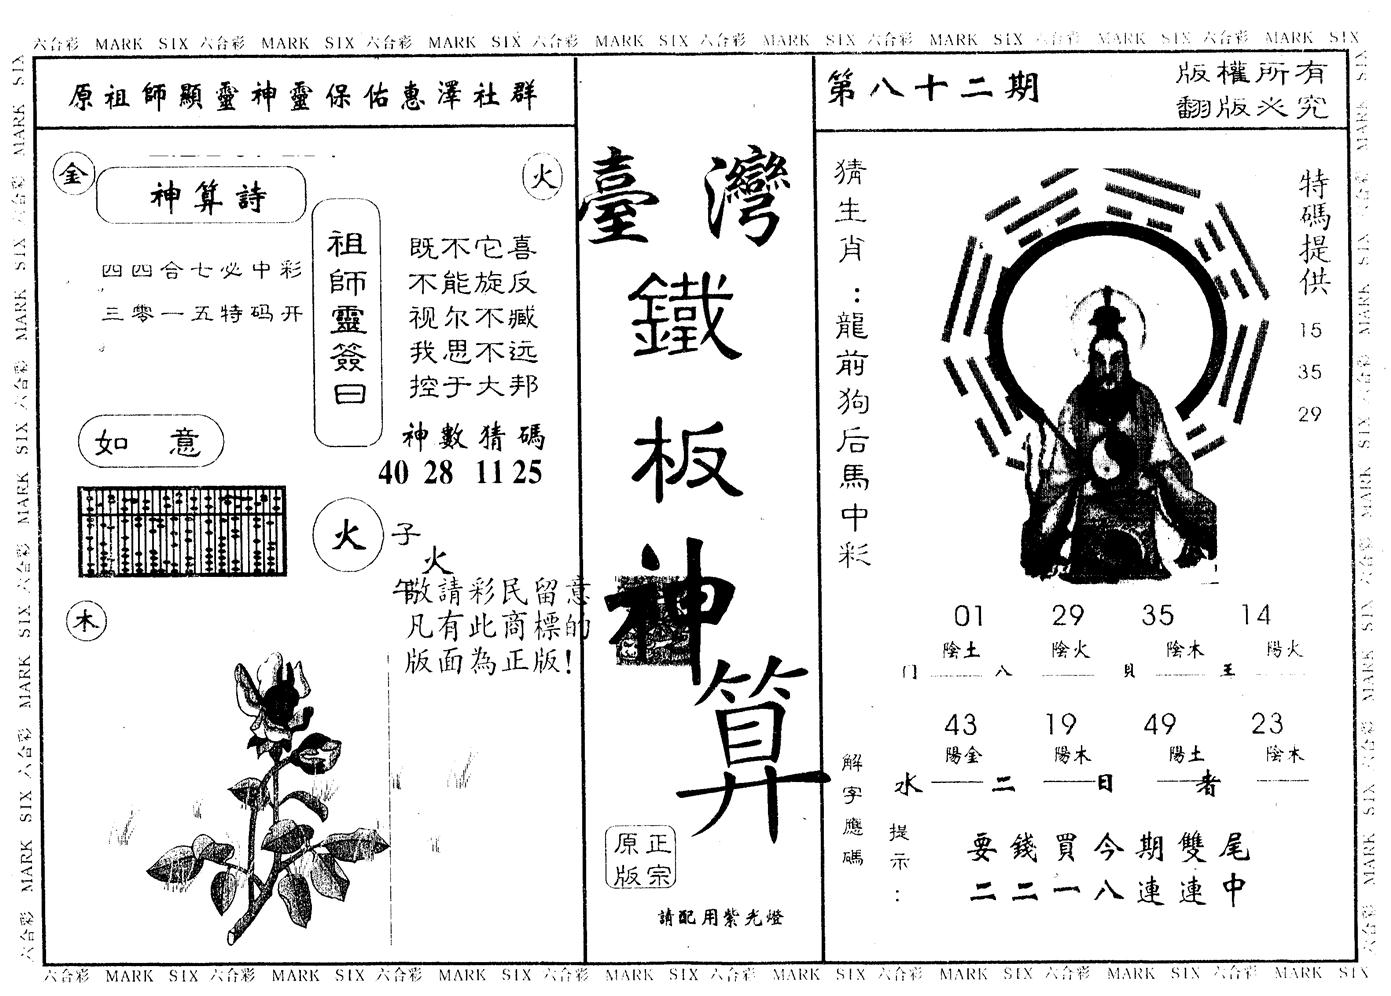 六合彩 MARK SIX 六合彩 MARK SIX 六合彩 MARK SIX 六合彩 MARK SIX 六合彩 MARK SIX 六合彩 MARK SIX 六合彩 MARK SIX 六合彩 MARK SIX
原祖師顯靈神靈保佑惠澤社群
金
火
神算詩
四四合七必中彩
三零一五特码开
祖師靈簽曰
既不它喜
不能旋反
视尔不臧
我思不远
控于大邦
神數猜碼
40 28 11 25
如意
火
子
火
午
敬請彩民留意
凡有此商標的
版面為正版!
木
臺灣
鐵
板
神
算
正宗
原版
請配用紫光燈
第八十二期
版權所有
翻版必究
猜生肖:龍前狗后馬中彩
特碼提供
15
35
29
01 29 35 14
陰土 陰火 陰木 陽火
门 八 貝 王
43 19 49 23
陽金 陽木 陽土 陰木
水 二 日 者
解字應碼
提示:
要錢買今期雙尾
二二一八連連中
六合彩 MARK SIX 六合彩 MARK SIX 六合彩 MARK SIX 六合彩 MARK SIX 六合彩 MARK SIX 六合彩 MARK SIX 六合彩 MARK SIX 六合彩 MARK SIX